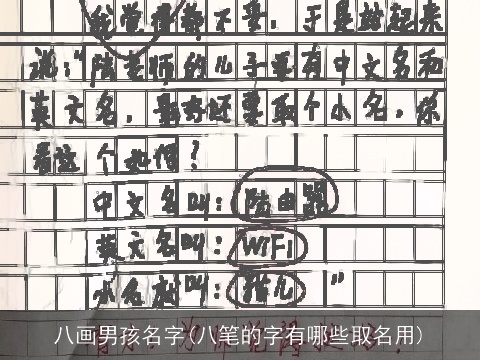 我觉得都不要，于是站起来
说："陆老师的儿子要有中文名和
英文名，最好还要取个小名，你
看这个如何？
中文名叫：陆由器
英文名叫：WiFi
小名就叫：猫儿"
八画男孩名字(八笔的字有哪些取名用)